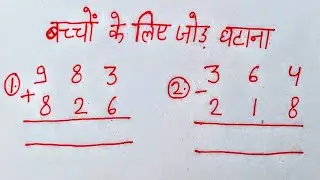 बच्चों के लिए जोड़ घटाना
① 9 8 3 ② 3 6 4
+ 8 2 6 - 2 1 8